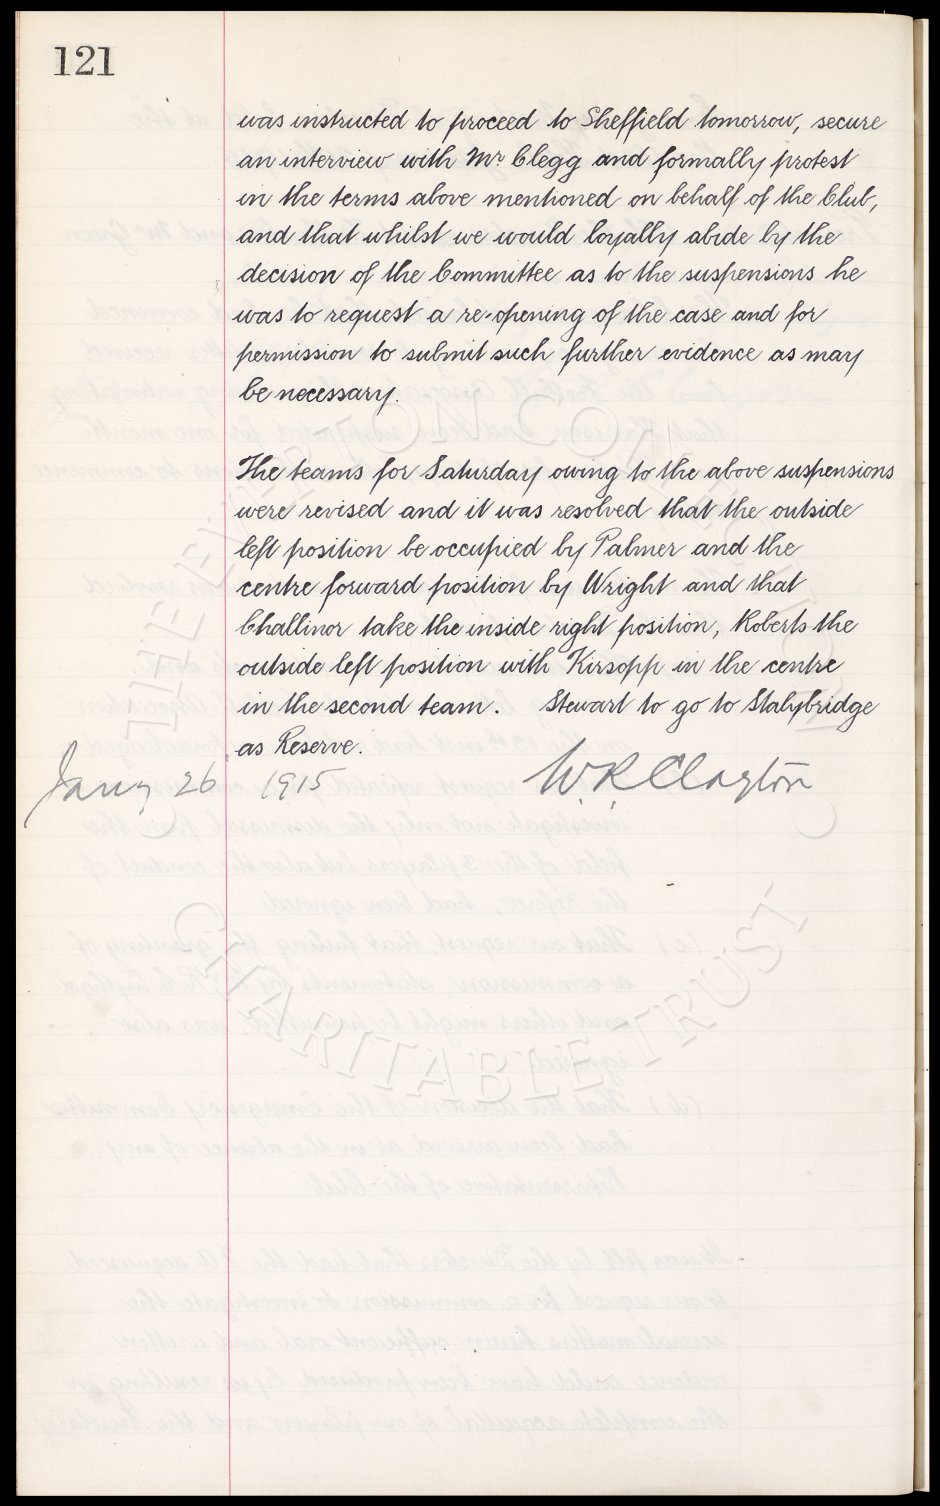 121
was instructed to proceed to Sheffield tomorrow, secure
an interview with Mr Clegg and formally protest
in the terms above mentioned on behalf of the Club,
and that whilst we would loyally abide by the
decision of the Committee as to the suspensions he
was to request a re-opening of the case and for
permission to submit such further evidence as may
be necessary.
The teams for Saturday owing to the above suspensions
were revised and it was resolved that the outside
left position be occupied by Palmer and the
centre forward position by Wright and that
Challinor take the inside right position, Roberts the
outside left position with Kirsopp in the centre
in the second team. Stewart to go to Stalybridge
as Reserve.
Jany 26 1915 W.R Clayton
THE EVERTON COLLECTION
CHARITABLE TRUST